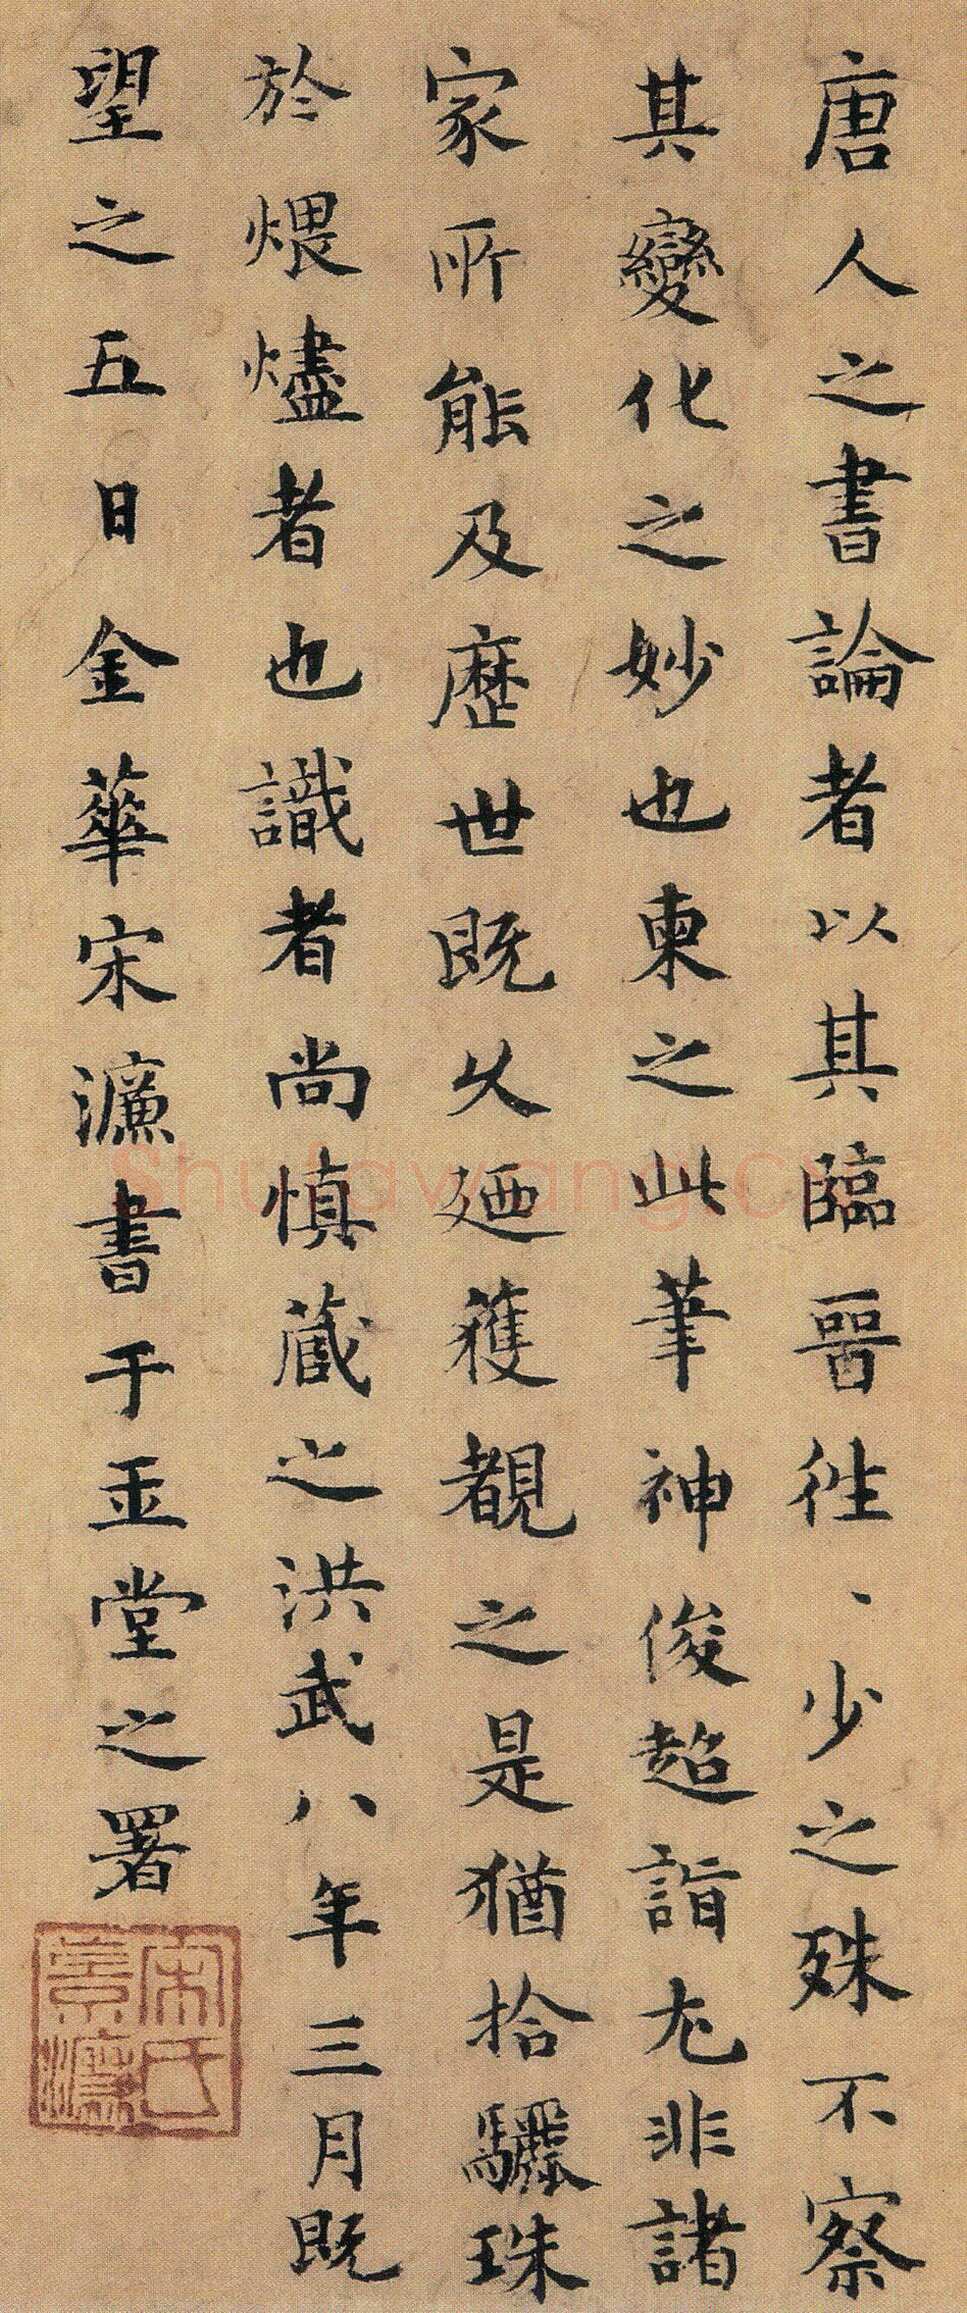 唐人之書論者以其臨晉往、少之殊不察
其變化之妙也柬之此筆神俊超詣尤非諸
家所能及歷世既久廼獲覩之是猶拾驪珠
於煨燼者也識者尚慎藏之洪武八年三月既
望之五日金華宋濂書于玉堂之署
宋氏
景濂